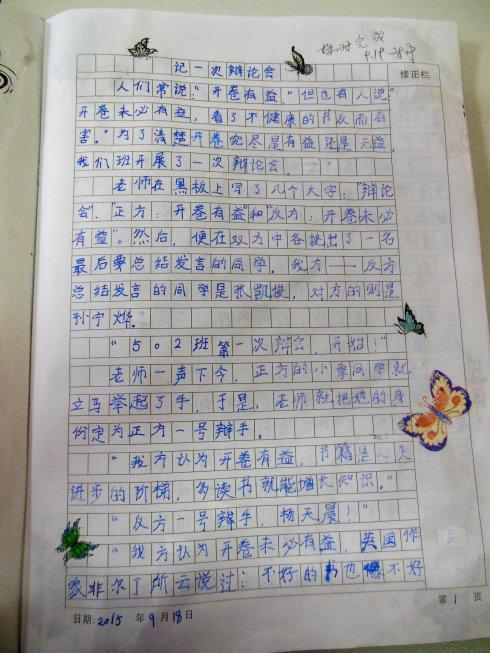 按时完成
9.19
记一次辩论会
修正栏
人们常说："开卷有益。"但也有人说："
开卷未必有益，看了不健康的书反而有
害。"为了清楚开卷究尽是有益还是无益，
我们班开展了一次辩论会。
老师在黑板上写了几个大字："辩论
会"、"正方：开卷有益"和"反方：开卷未必
有益"。然后，便在双方中各挑出了一名
最后要总结发言的同学。我方——反方
总结发言的同学是张凯俊，对方的则是
孙宇烨。
"502班第一次辩会，开始！"
老师一声下令，正方的小季同学就
立马举起了手，于是，老师就把她的身
份定为正方一号辩手。
"我方认为开卷有益，书籍是人类
进步的阶梯，多读书就能增长知识。"
"反方一号辩手，杨天晨！"
"我方认为开卷未必有益，英国作
家非尔丁所云说过：不好的书也像不好
第1页
日期：2015年9月18日